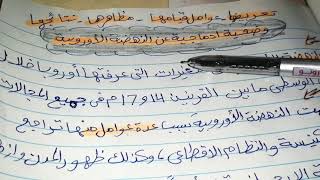 تعريفها، عوامل قيامها، مظاهرها، نتائجها
وضعية ادماجية عن النهضة الأوروبية
التي عرفتها أوروبا خلال
الوسطى ما بين القرنين 14 و 17م في جميع المجالات
النهضة الأوروبية بسبب عدة عوامل منها تراجع
والنظام الاقطاعي، وكذلك ظهور المدن